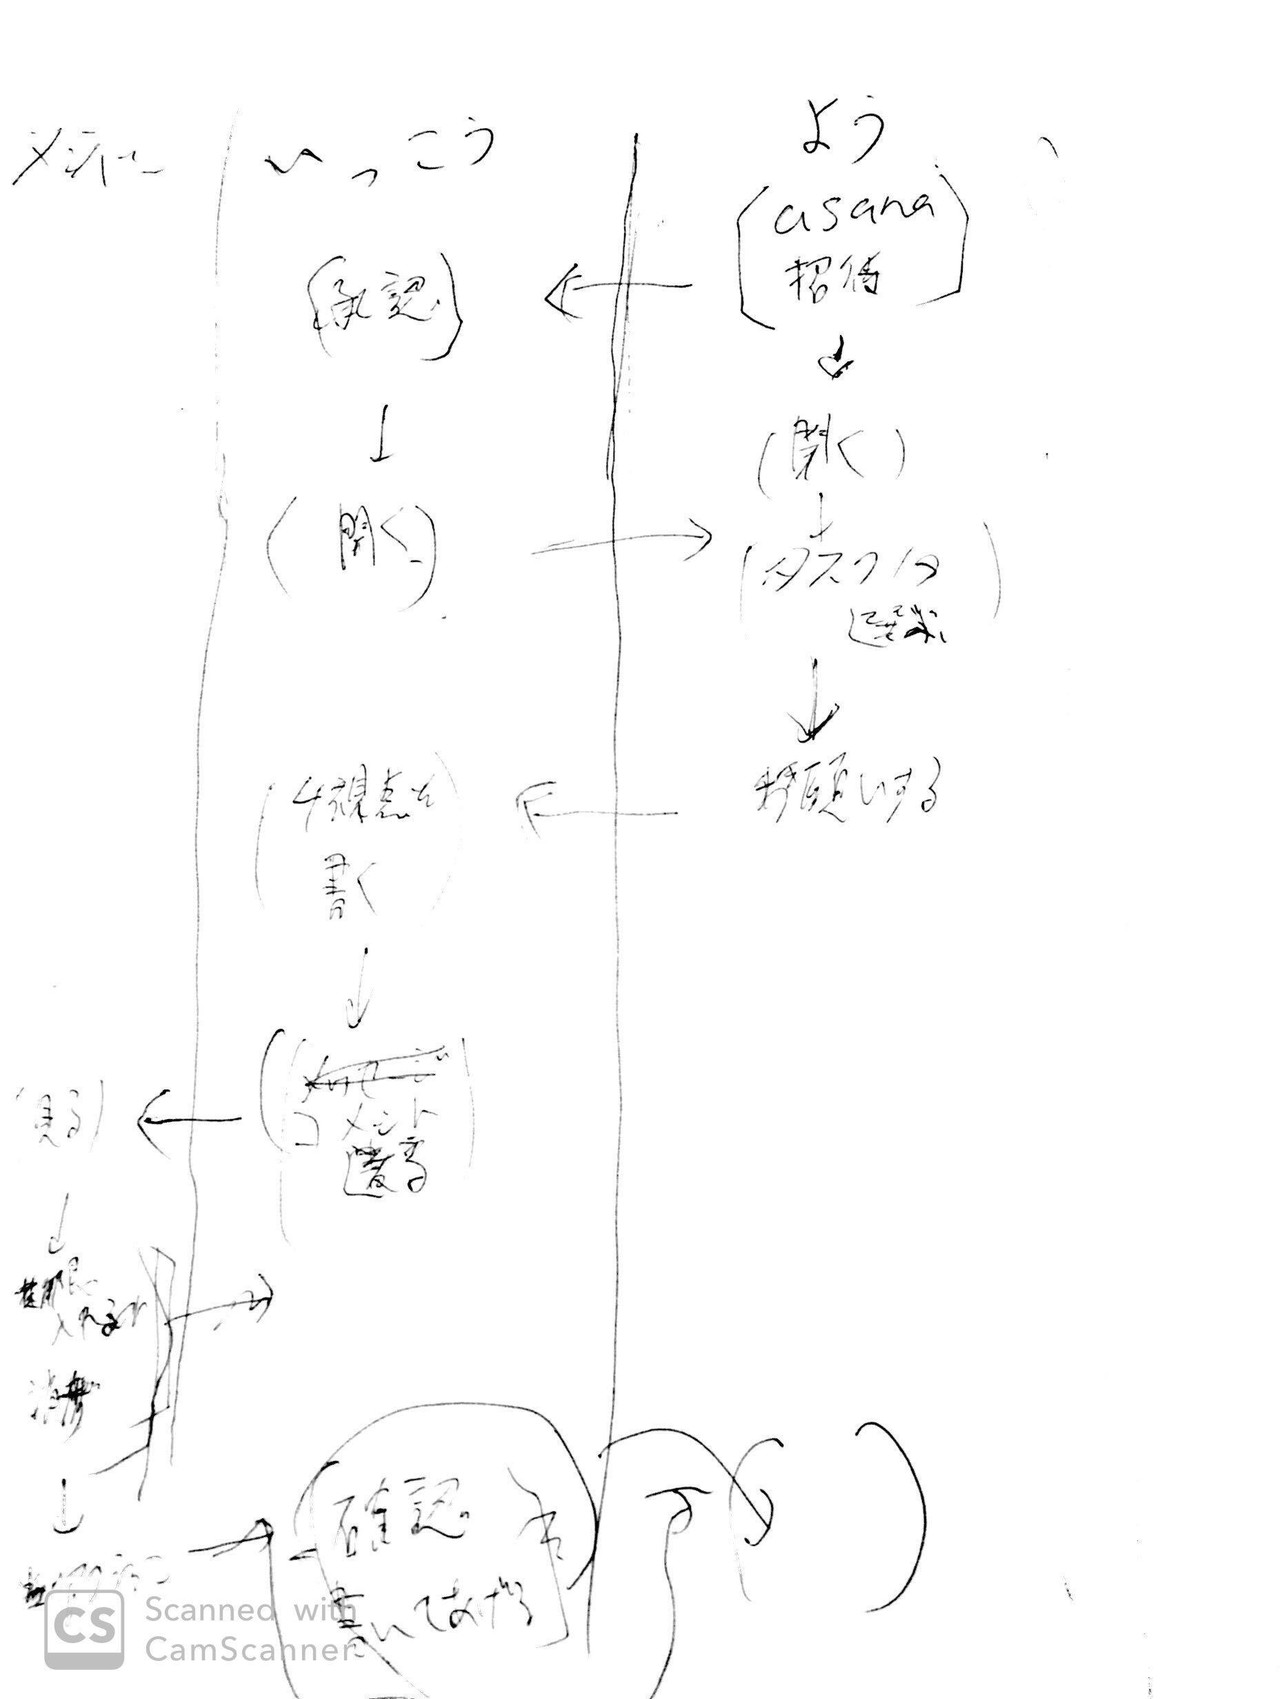 メンバー
いっこう
よう
(asana
招待)
(承認)
(開く)
(開く)
(タスク
選択
お願いする
(4視点を
書く)
コメント
(見る)
確認
書いてあげる
CS Scanned with
CamScanner